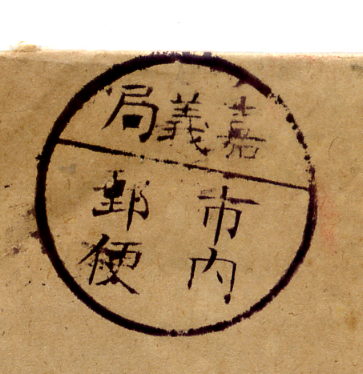 嘉義局
市内
郵便